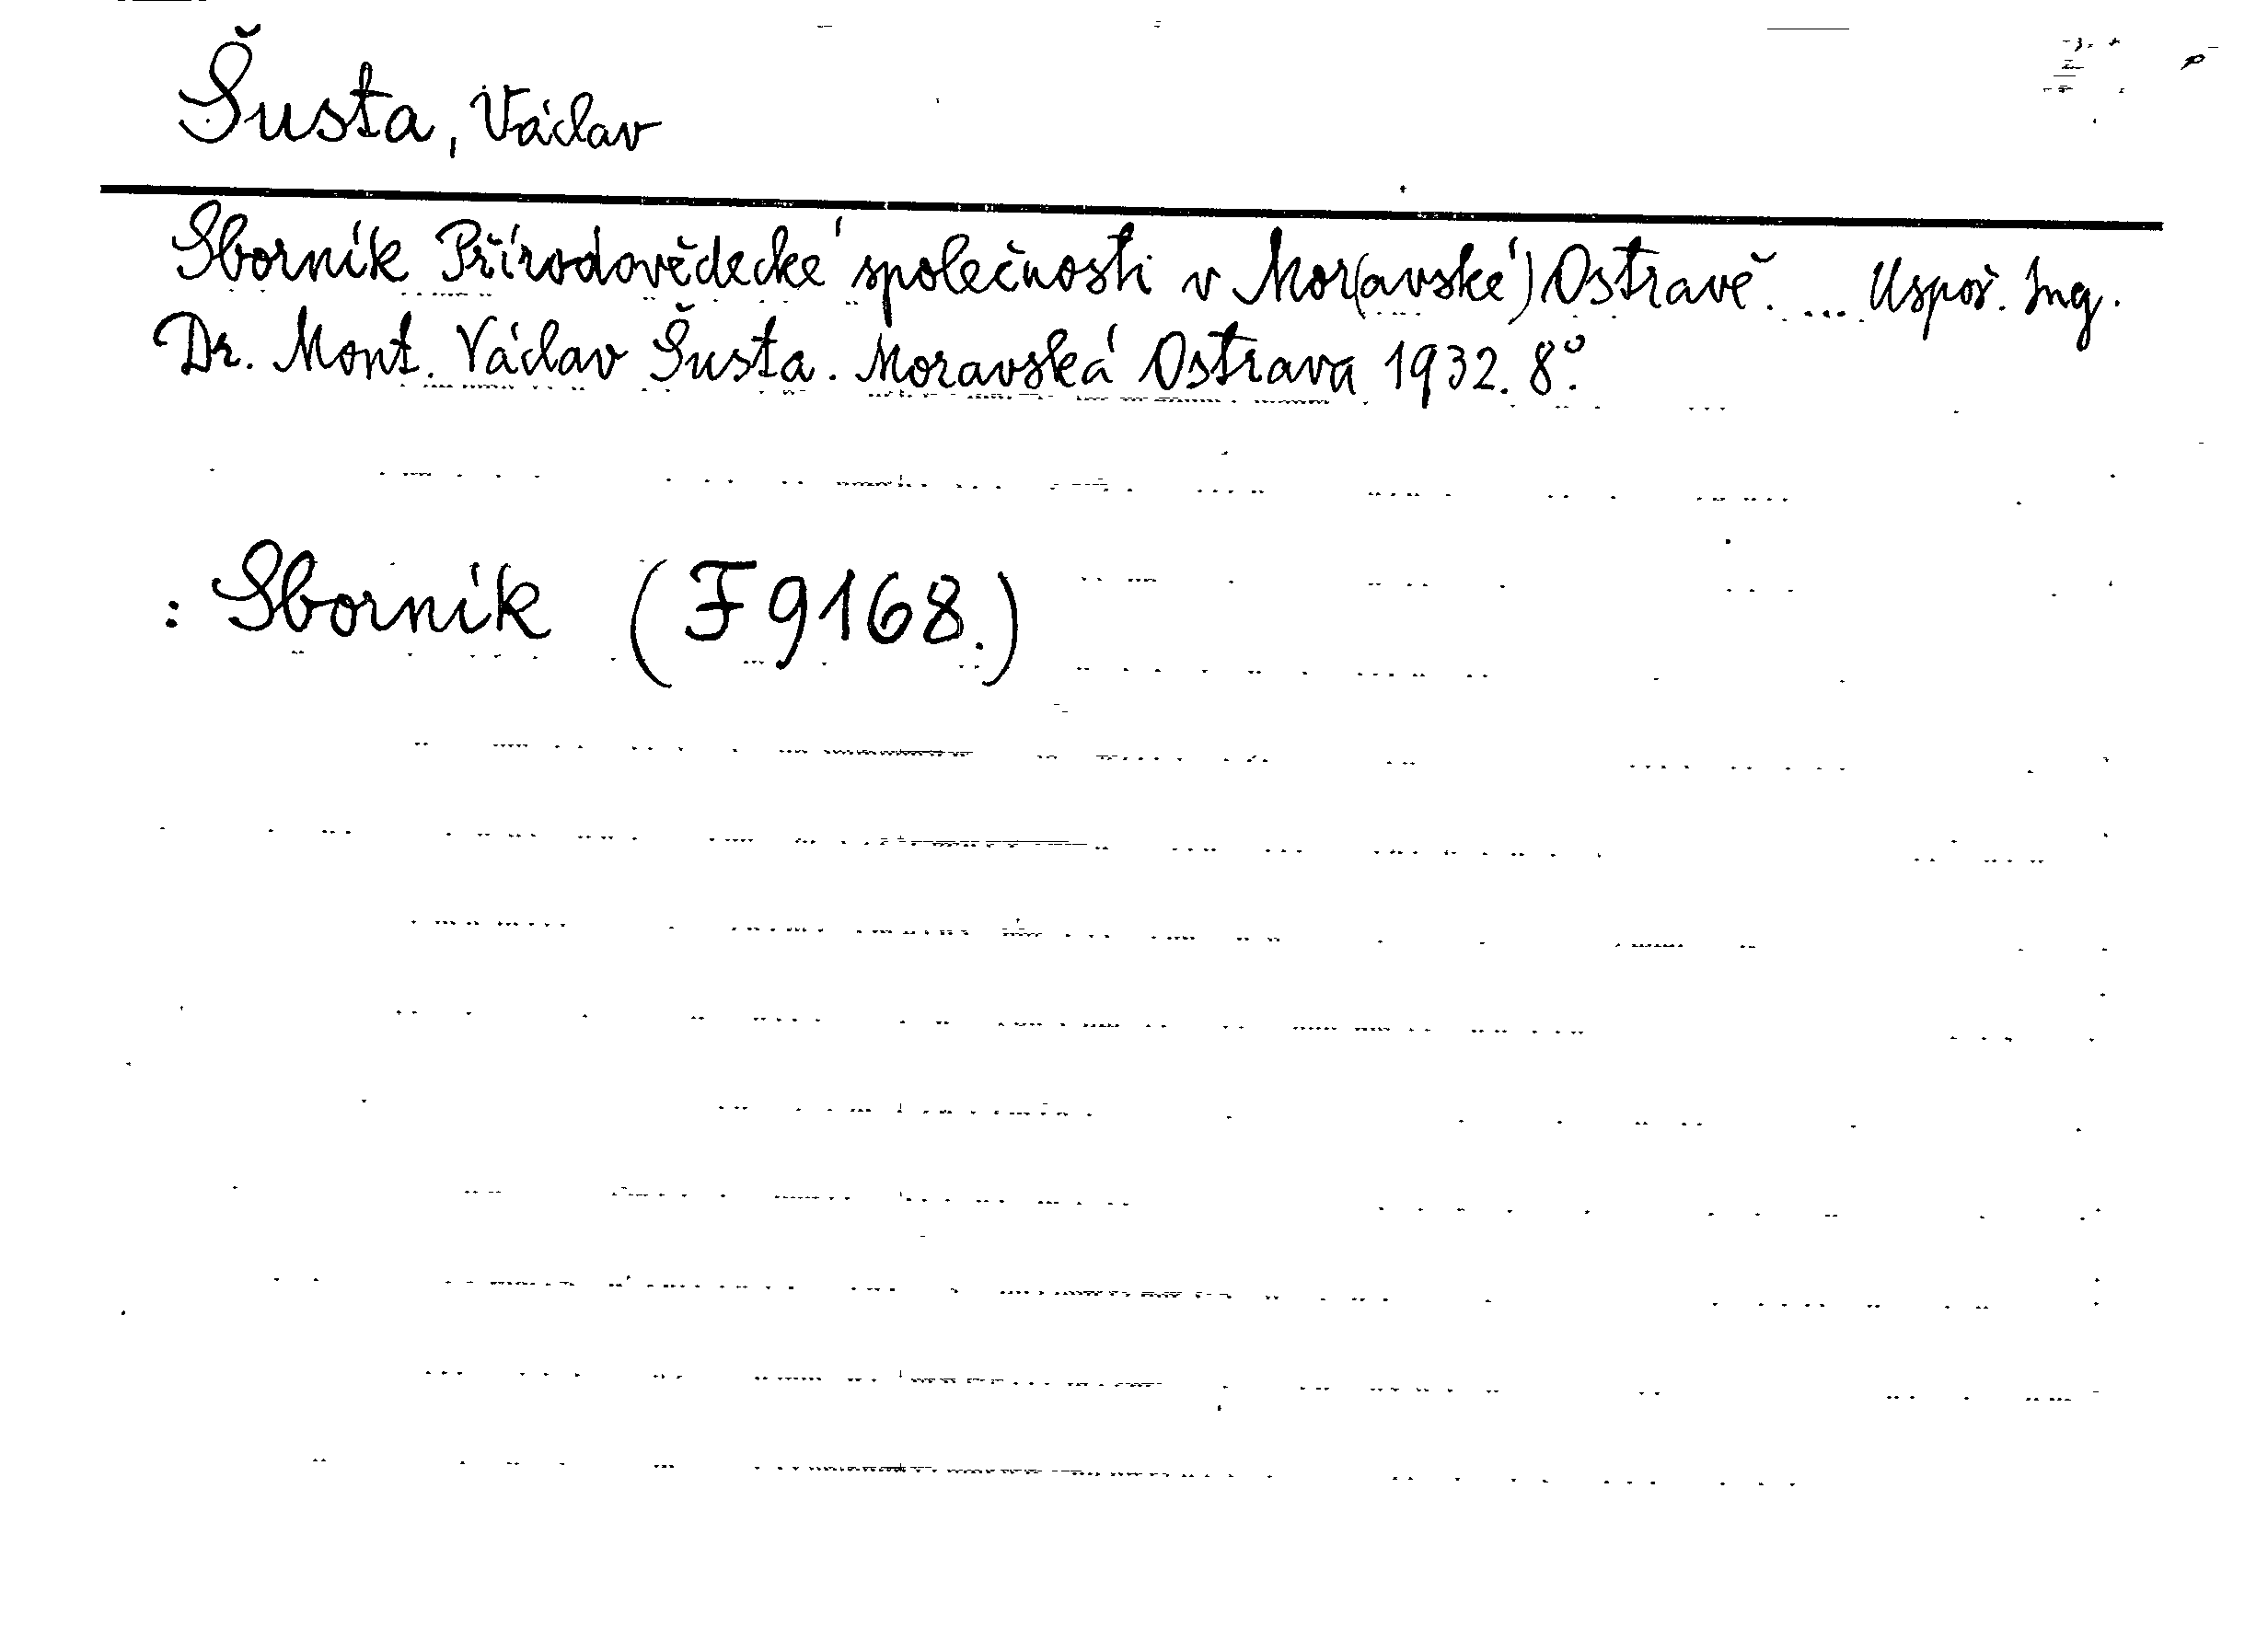 Šusta, Václav
Sborník Přírodovědecké společnosti v Mor(avské) Ostravě. ... Uspoř. Ing.
Dr. Mont. Václav Šusta. Moravská Ostrava 1932. 8°.
: Sborník (F 9168.)